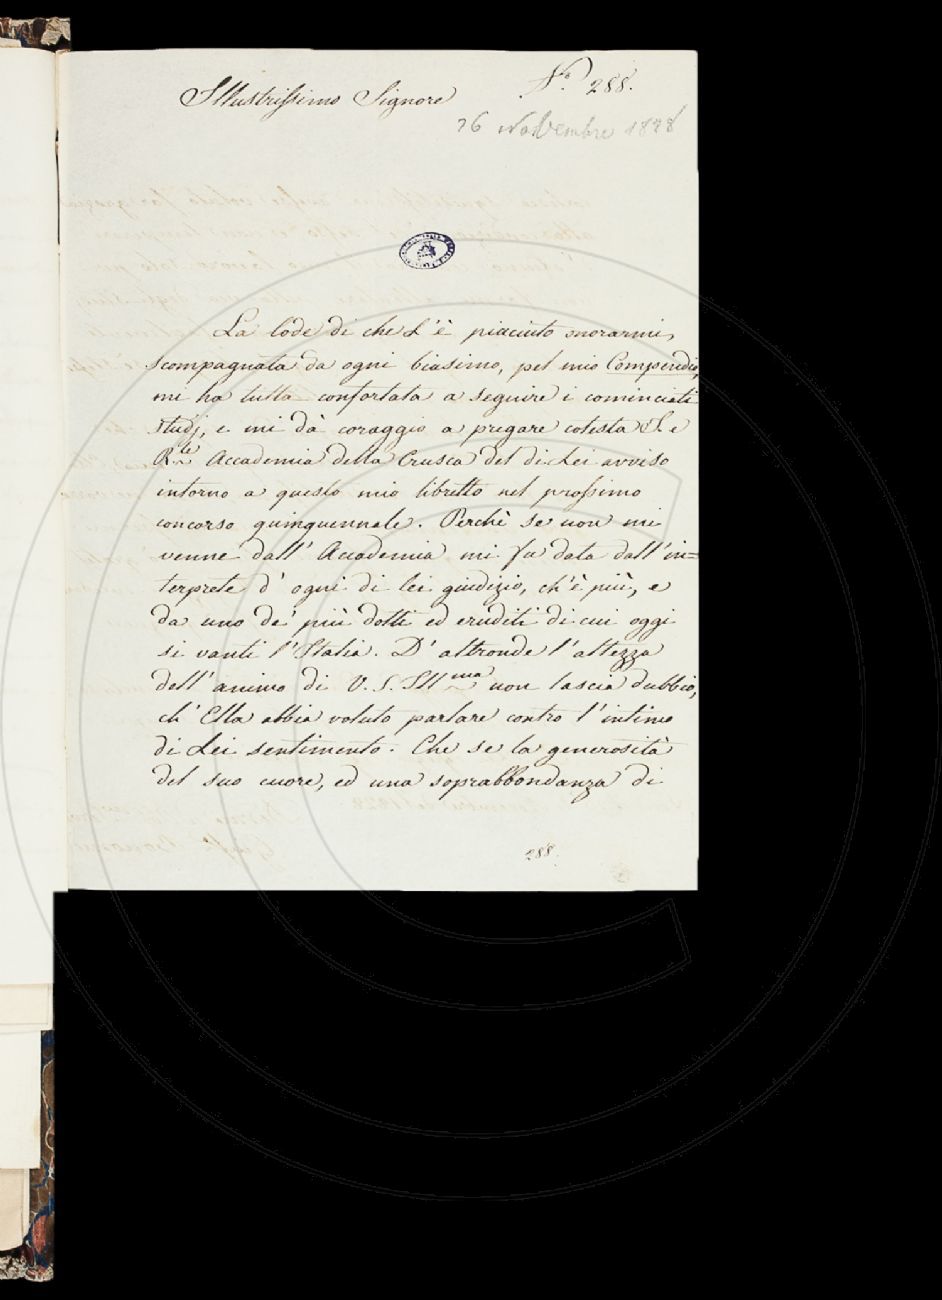 N.° 288.
Illustrissimo Signore
26 Novembre 1828
La lode di che L'è piaciuto onorarmi,
scompagnata da ogni biasimo, pel mio Compendio,
mi ha tutta confortata a seguire i cominciati
studj, e mi dà coraggio a pregare cotesta I. e
R.le Accademia della Crusca del di Lei avviso
intorno a questo mio libretto nel prossimo
concorso quinquennale. Perchè se non mi
venne dall'Accademia mi fu data dall'in=
terprete d'ogni di lei giudizio, ch'è più, e
da uno de' più dotti ed eruditi di cui oggi
si vanti l'Italia. D'altronde l'altezza
dell'animo di V. S. Ill.ma non lascia dubbio,
ch'Ella abbia voluto parlare contro l'intimo
di Lei sentimento. Che se la generosità
del suo cuore, ed una soprabbondanza di
288.